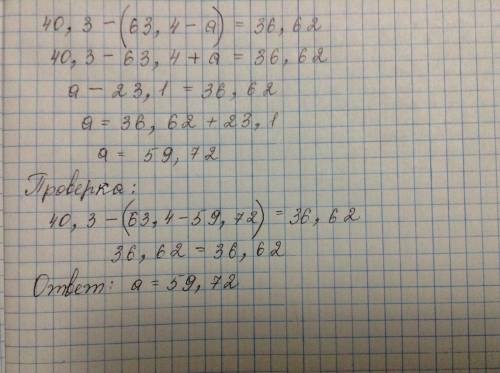 40,3-(63,4-а)=36,62
40,3-63,4+а=36,62
а-23,1=36,62
а=36,62+23,1
а=59,72
Проверка:
40,3-(63,4-59,72)=36,62
36,62=36,62
Ответ: а=59,72